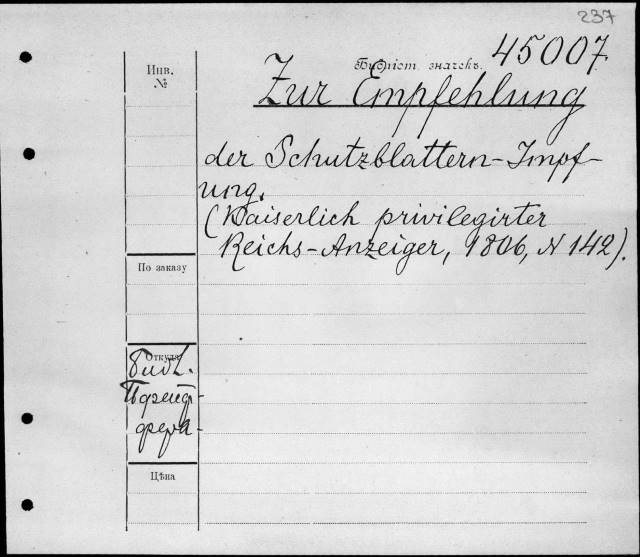 237
45007
Библіот. значекъ.
Инв.
№
Zur Empfehlung
der Schutzblattern-Impf-
ung.
(Kaiserlich privilegirter
Reichs-Anzeiger, 1806, N 142).
По заказу
Откуда
Библ.
Пфейф-
фера
Цѣна